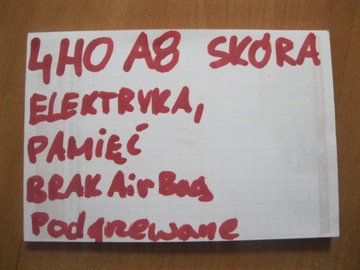 4H0 A8 SKÓRA
ELEKTRYKA,
PAMIĘĆ
BRAK Air Bag
Podgrzewane